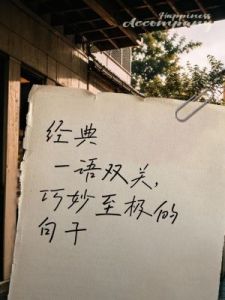 Happiness
Accompany
经典
一语双关,
巧妙至极的
句子